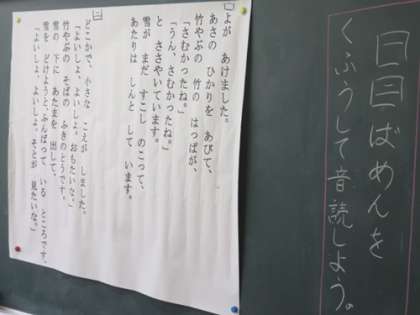 一二ばめんを
くふうして音読しよう。
よが あけました。
あさの ひかりを あびて、
竹やぶの 竹の はっぱが、
「さむかったね。」
「うん、さむかったね。」
と ささやいています。
雪が まだ すこし のこって、
あたりは しんと して います。
二
どこかで、小さな こえが しました。
「よいしょ、よいしょ。おもたいな。」
竹やぶの そばの ふきのとうです。
雪の 下に あたまを 出して、
雪を どけようと、ふんばって いる ところです。
「よいしょ、よいしょ。そとが 見たいな。」